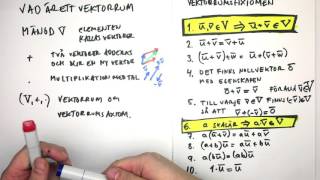 VAD ÄR ETT VEKTORRUM
MÄNGD V ELEMENTEN
KALLAS VEKTORER
+ TVÅ VEKTORER ADDERAS
OCH BLIR EN NY VEKTOR
· MULTIPLIKATION MED TAL
(V,+,·) VEKTORRUM OM
VEKTORRUMSAXIOM.
VEKTORRUMSAXIOMEN
1. ū,v̄∈V ⇒ ū+v̄∈V
2. ū+v̄=v̄+ū
3.
4. DET FINNS NOLLVEKTOR ō
MED EGENSKAPEN
ō+v̄=v̄ FÖR ALLA v̄∈V
5. TILL VARJE v̄∈V FINNS (-v̄)
SÅ ATT v̄+(-v̄)=ō
6. a SKALÄR ⇒ aū∈V
7. a(ū+v̄)=aū+av̄
8. (a+b)ū=aū+bū
9. a(bū)=(ab)ū
10. 1·ū=ū